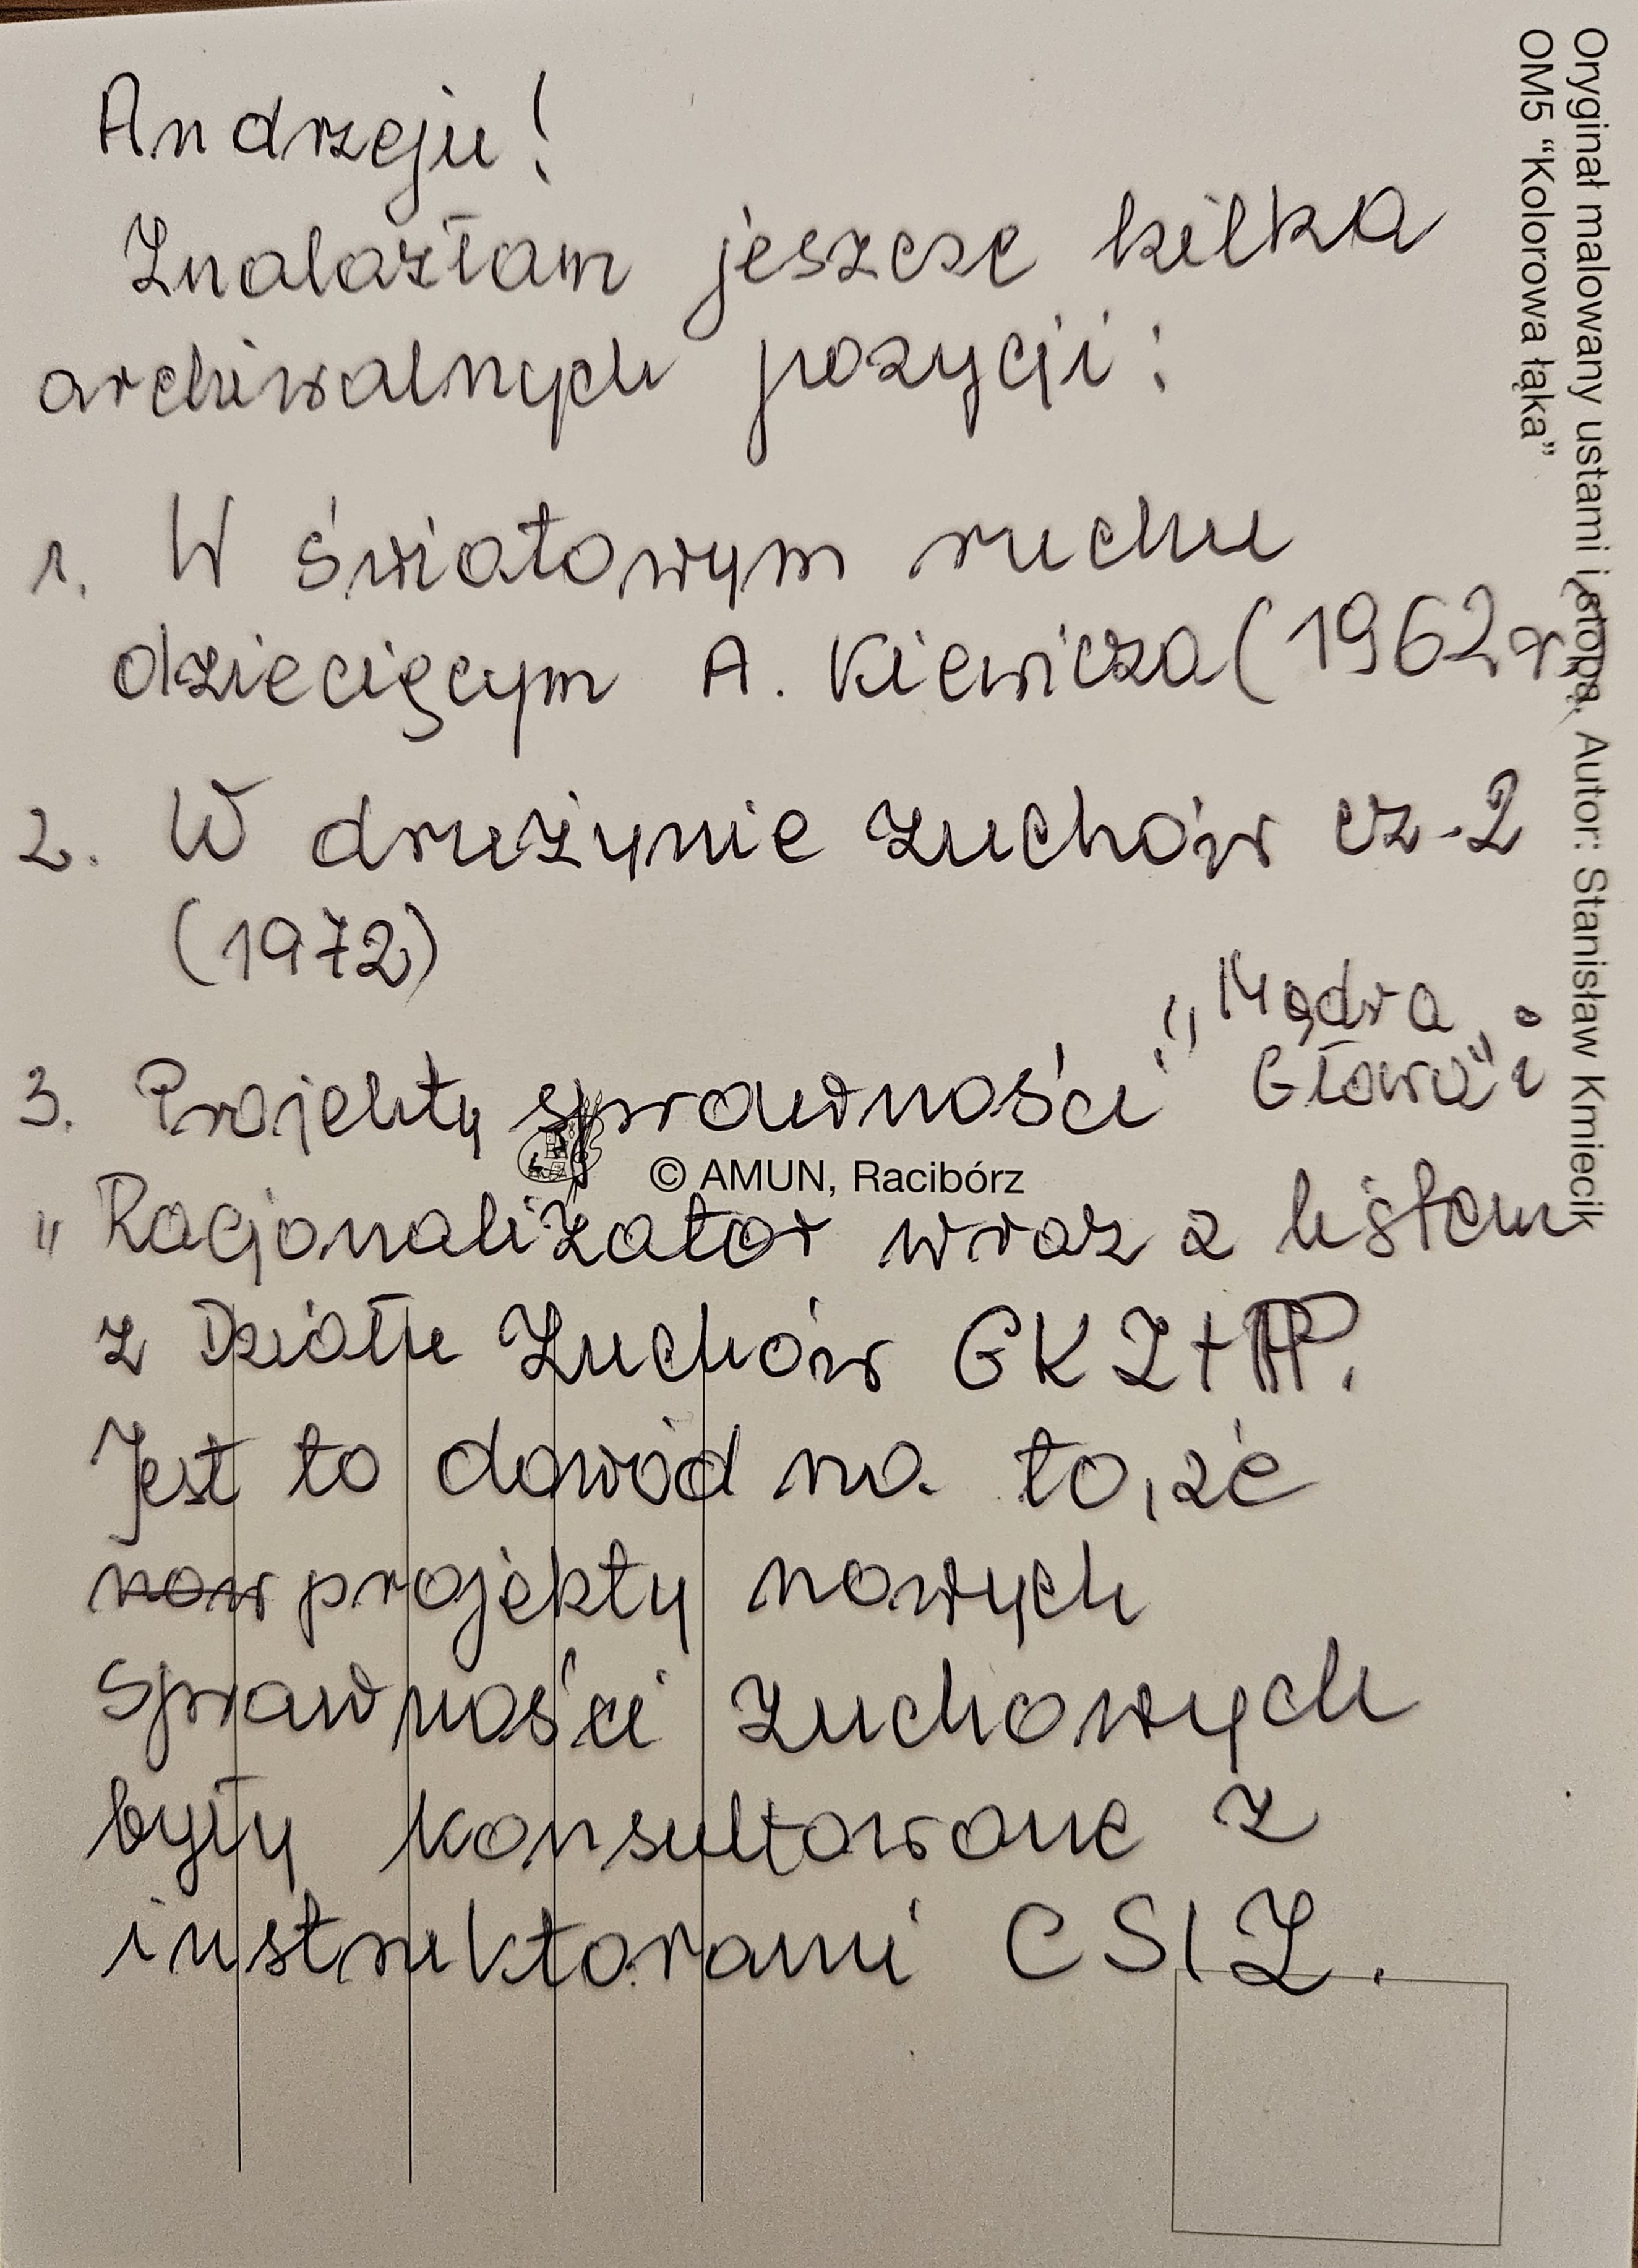 Andrzeju!
Znalazłam jeszcze kilka
archiwalnych pozycji:
1. W światowym ruchu
dziecięcym A. Kiewicza (1962r.)
2. W drużynie zuchów cz. 2
(1972)
3. Projekty sprawności „Mądra
Głowa" i
„Racjonalizator wraz z listem
z Działu Zuchów GK ZHP.
Jest to dowód na to, że
now projekty nowych
sprawności zuchowych
były konsultowane z
instruktorami CSIZ.
© AMUN, Racibórz
Oryginał malowany ustami i stopą, Autor: Stanisław Kmiecik
OM5 “Kolorowa łąka”